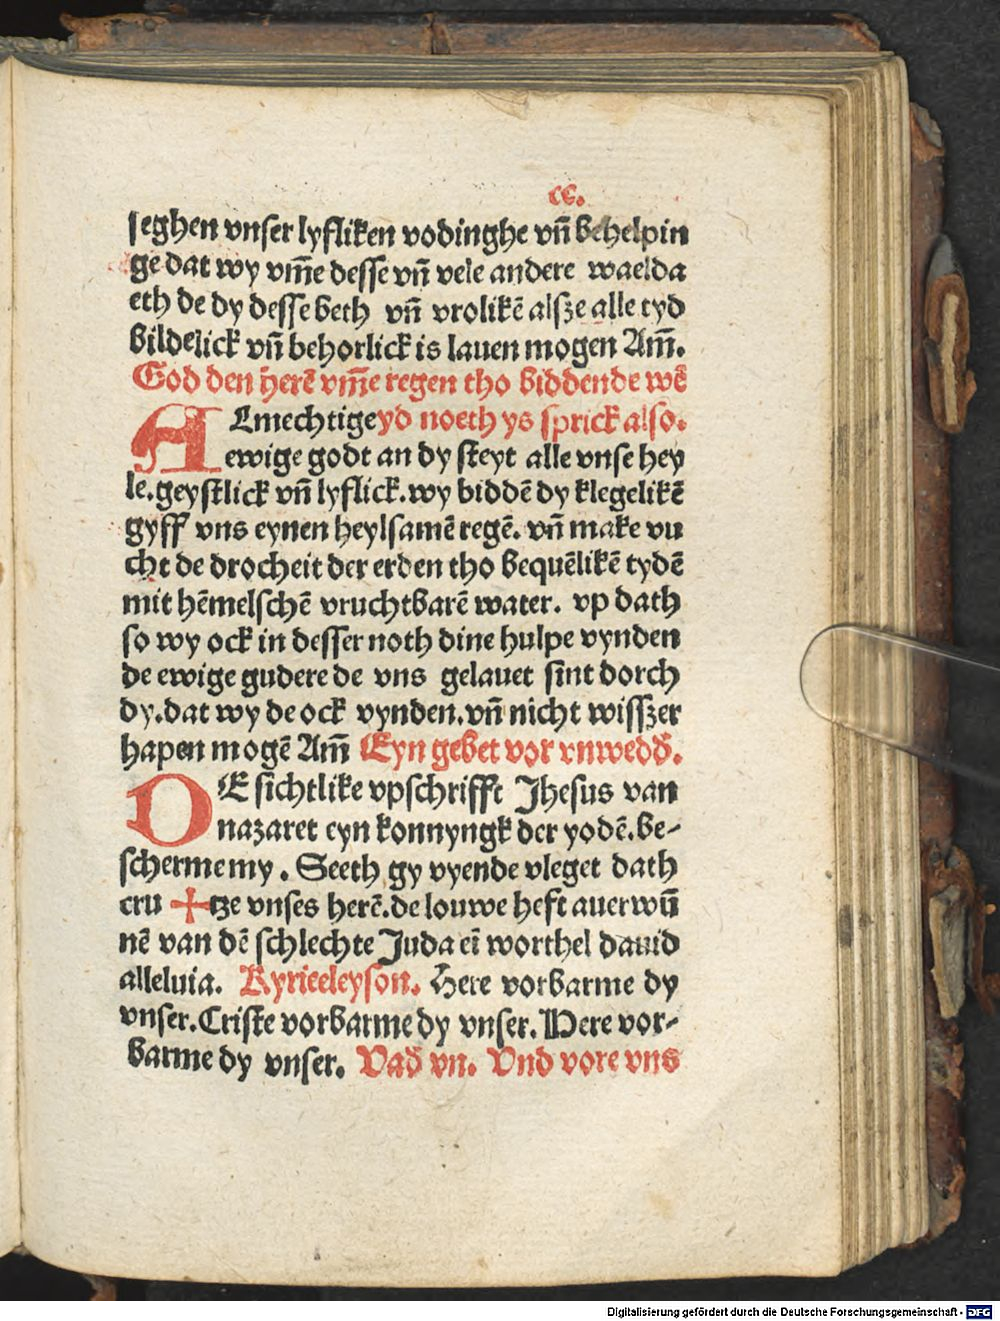 cc.
seghen vnser lyfliken vodinghe vn̄ behelpin
ge dat wy vm̄e desse vn̄ vele andere waelda
eth de dy desse beth vn̄ vrolikē alsze alle tyd
bildelick vn̄ behorlick is lauen mogen Am̄.
God den herē vm̄e regen tho biddende wē
ALmechtige yd noeth ys sprick also.
ewige godt an dy steyt alle vnse hey
le. geystlick vn̄ lyflick. wy biddē dy klegelikē
gyff vns eynen heylsamē regē. vn̄ make vu
cht de drocheit der erden tho bequēlikē tydē
mit hēmelschē vruchtbarē water. vp dath
so wy ock in desser noth dine hulpe vynden
de ewige gudere de vns gelauet sint dorch
dy. dat wy de ock vynden. vn̄ nicht wisszer
hapen mogē Am̄ Eyn gebet vor vnwedd̄.
DE sichtlike vpschrifft Jhesus van
nazaret eyn konnyngk der yodē. be-
scherme my. Seeth gy vyende vleget dath
cru ✝tze vnses herē. de louwe heft auerwū
nē van dē schlechte Juda eī worthel dauid
alleluia. Kyrieeleyson. Here vorbarme dy
vnser. Criste vorbarme dy vnser. Here vor-
barme dy vnser. Vad̄ vn. Vnd vore vns
Digitalisierung gefördert durch die Deutsche Forschungsgemeinschaft - DFG